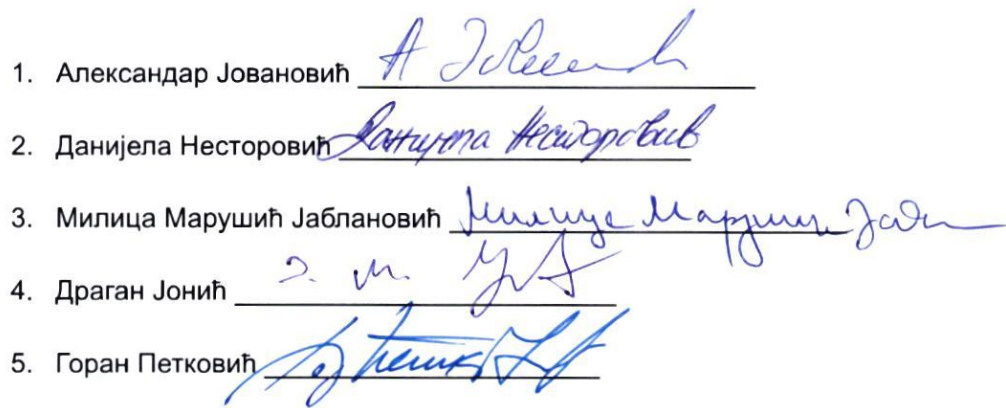 1. Александар Јовановић А Јов
2. Данијела Несторовић Данијела Несторовић
3. Милица Марушић Јаблановић Милица Марушић Јабл
4. Драган Јонић
5. Горан Петковић